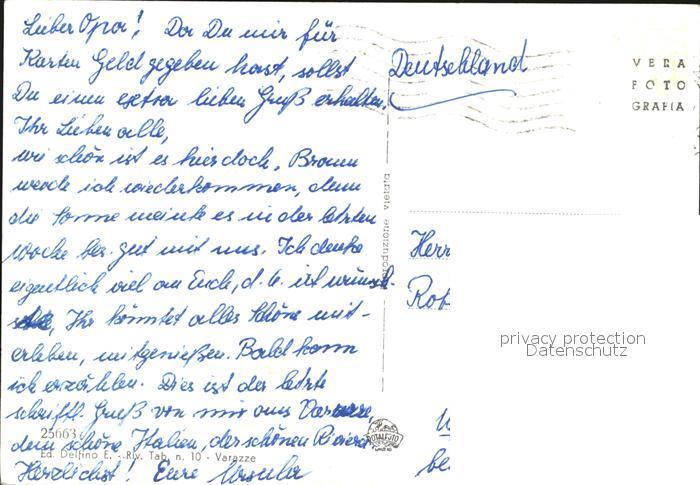 Lieber Opa! Da Du mir für
Karten Geld gegeben hast, sollst
Du einen extra lieben Gruß erhalten.
Ihr Lieben alle,
wie schön ist es hier doch. Braun
werde ich wiederkommen, denn
die Sonne meinte es in der letzten
Woche bes. gut mit uns. Ich denke
eigentlich viel an Euch, d. h. ich wünsch-
te, Ihr könntet alles Schöne mit-
erleben, mitgenießen. Bald kann
ich erzählen. Dies ist der letzte
schriftl. Gruß von mir aus Varazze,
dem schönen Italien, der schönen Riviera
Herzlichst! Eure Ursula
25663
Ed. Delfino E. - Riv. Tab. n. 10 - Varazze
riproduzione vietata
TOTALFOTO
Deutschland
VERA
FOTO
GRAFIA
Herr
Rob
privacy protection
Datenschutz
be